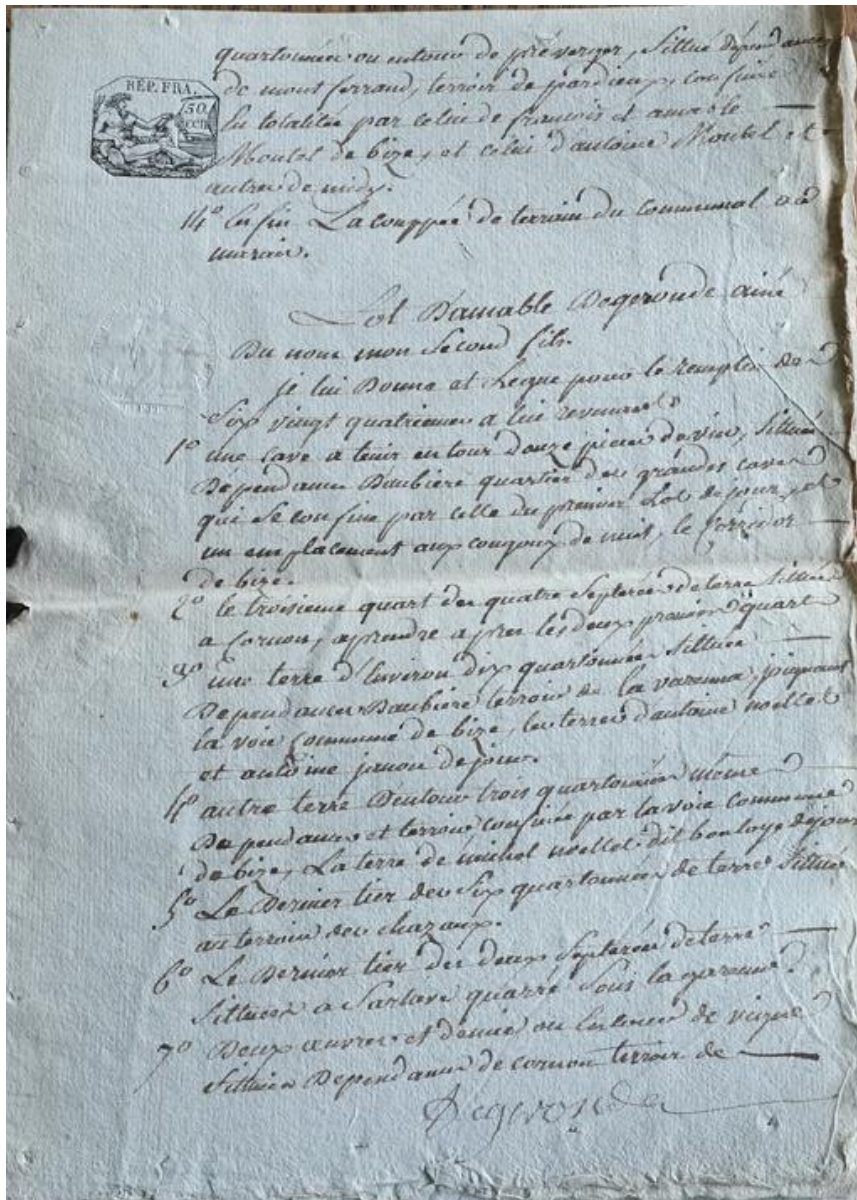 quartonnées ou entour de préverger, Sittué dépendances
de mont ferrand, terroir de jardieux, confiné
En totalitée par celui de francois et amable
Montel de bize, et celui d'antoine Montel et
autre de midy.
REP. FRA.
50
14° Enfin La couppée de terrain du communal
marais.
Lot D'amable Degeronde ainé
Du nom mon Second fils.
je lui Donne et Legue pour le remplir de
Six vingt quatriemes a lui revenues
1° une cave a tenir entour douze pieces de vin, Sittuée
Dependances D'aubière quartier des grandes caves
qui Se confine par celle du premier Lot de jour, et
un emplacement aux de nuit, le Corridor
de bize.
2° le troisieme quart des quatre Septerées de terre Sittuées
a Cornon, a prendre apres les deux premiers quart
3° une terre d'Environ dix quartonnées Sittuée
Dependances D'aubière terroir de la varenna, joignant
la voie Commune de bize, les terres d'antoine noellet
et antoine janon de jour.
4° autre terre D'entour trois quartonnées même
Dependances et terroir confinée par la voie Commune
de bize, La terre de michel noellet dit bonloye de jour
5° Le Dernier tier des Six quartonnées de terre Sittuée
au terroir des chazaux.
6° Le Dernier tier des deux Septerées de terre
Sittuées a Sarlave quarré Sous la garenne
7° Deux œuvres et demie ou Entour de vigne
Sittuées Dependances de cornon terroir de
Degironde